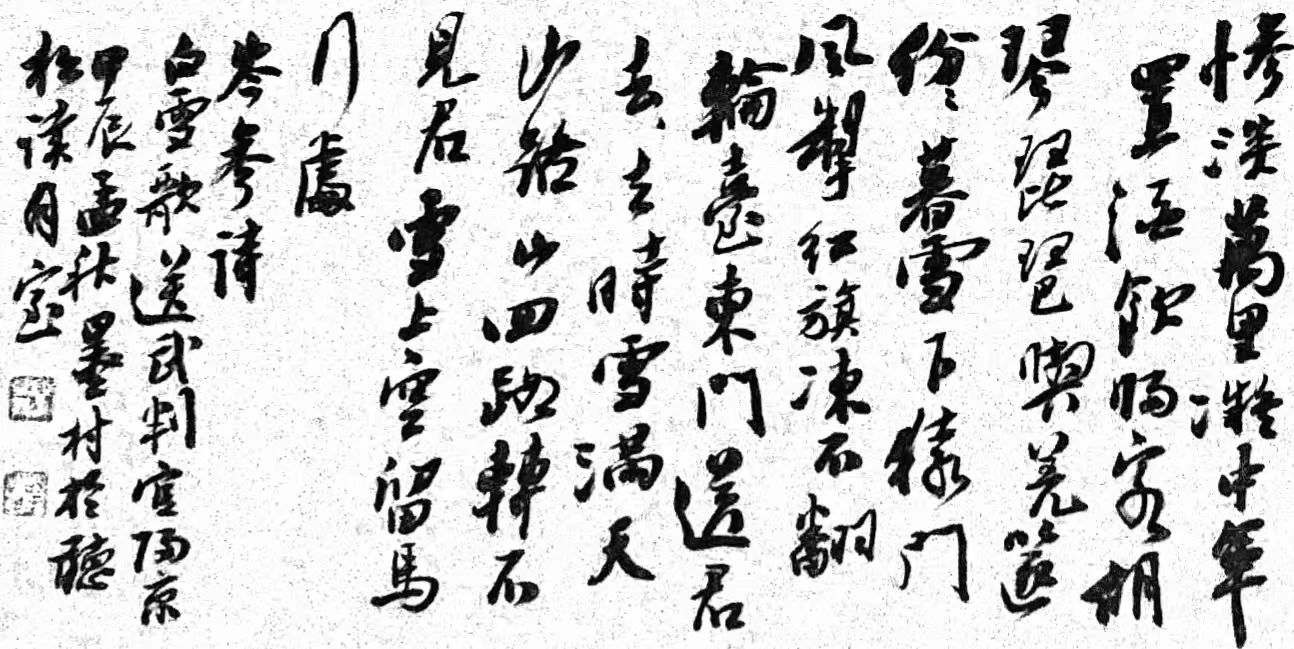 惨淡萬里凝中軍
置酒飲歸客胡
琴琵琶與羌笛
纷纷暮雪下轅門
風掣红旗凍不翻
輪臺東門送君
去去時雪满天
山路山回路轉不
見君雪上空留馬
行處
岑参詩
白雪歌送武判官歸京
甲辰孟秋墨村於聽
松讀月室